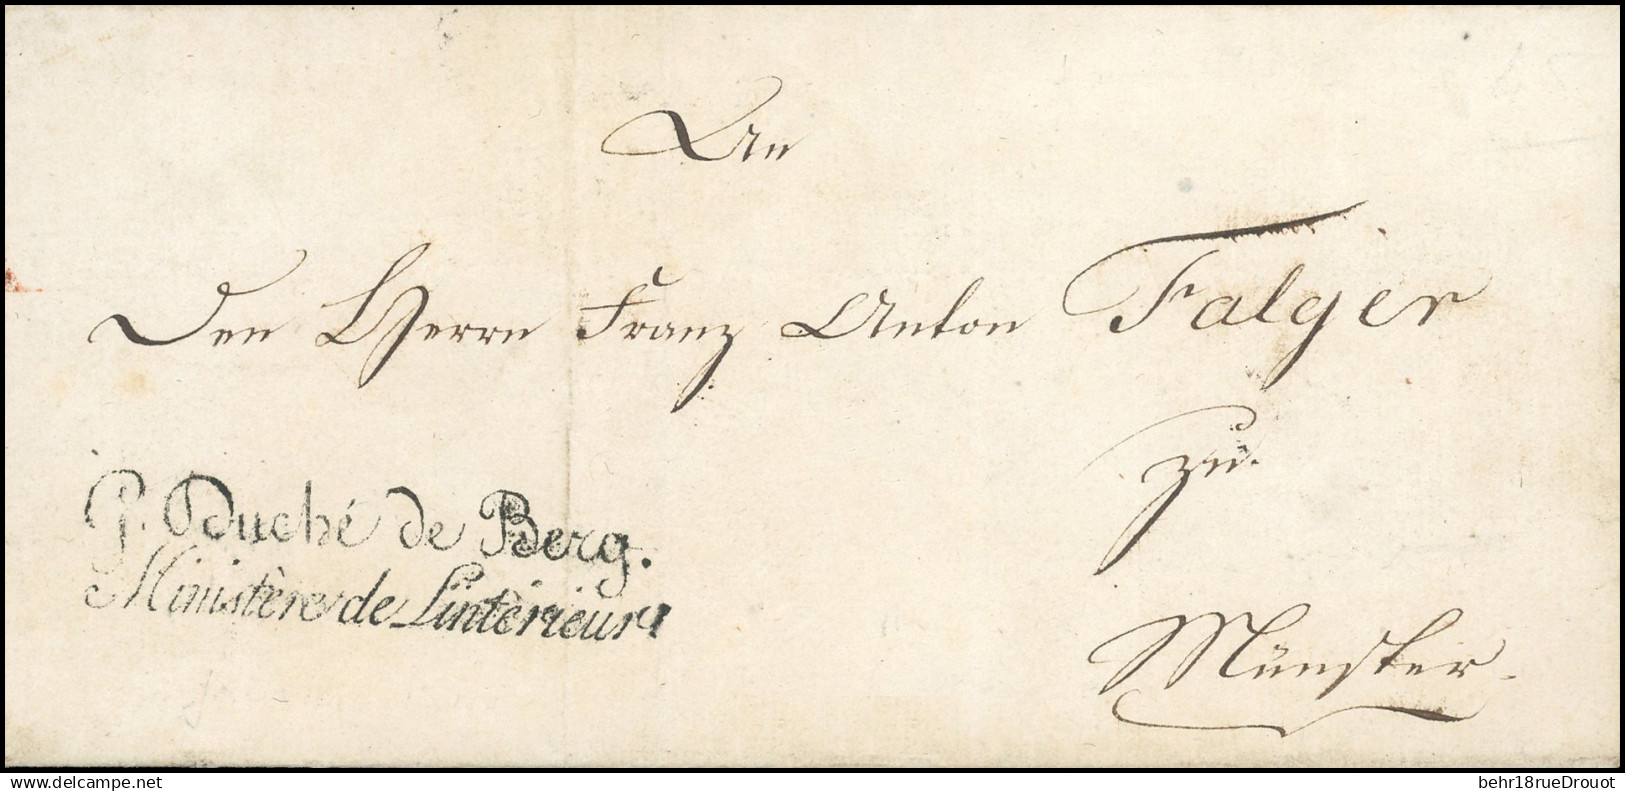 An
Den Herrn Franz Anton Falger
zu
Münster.
G. Duché de Berg.
Ministère de Lintérieur
www.delcampe.net
behr18rueDrouot